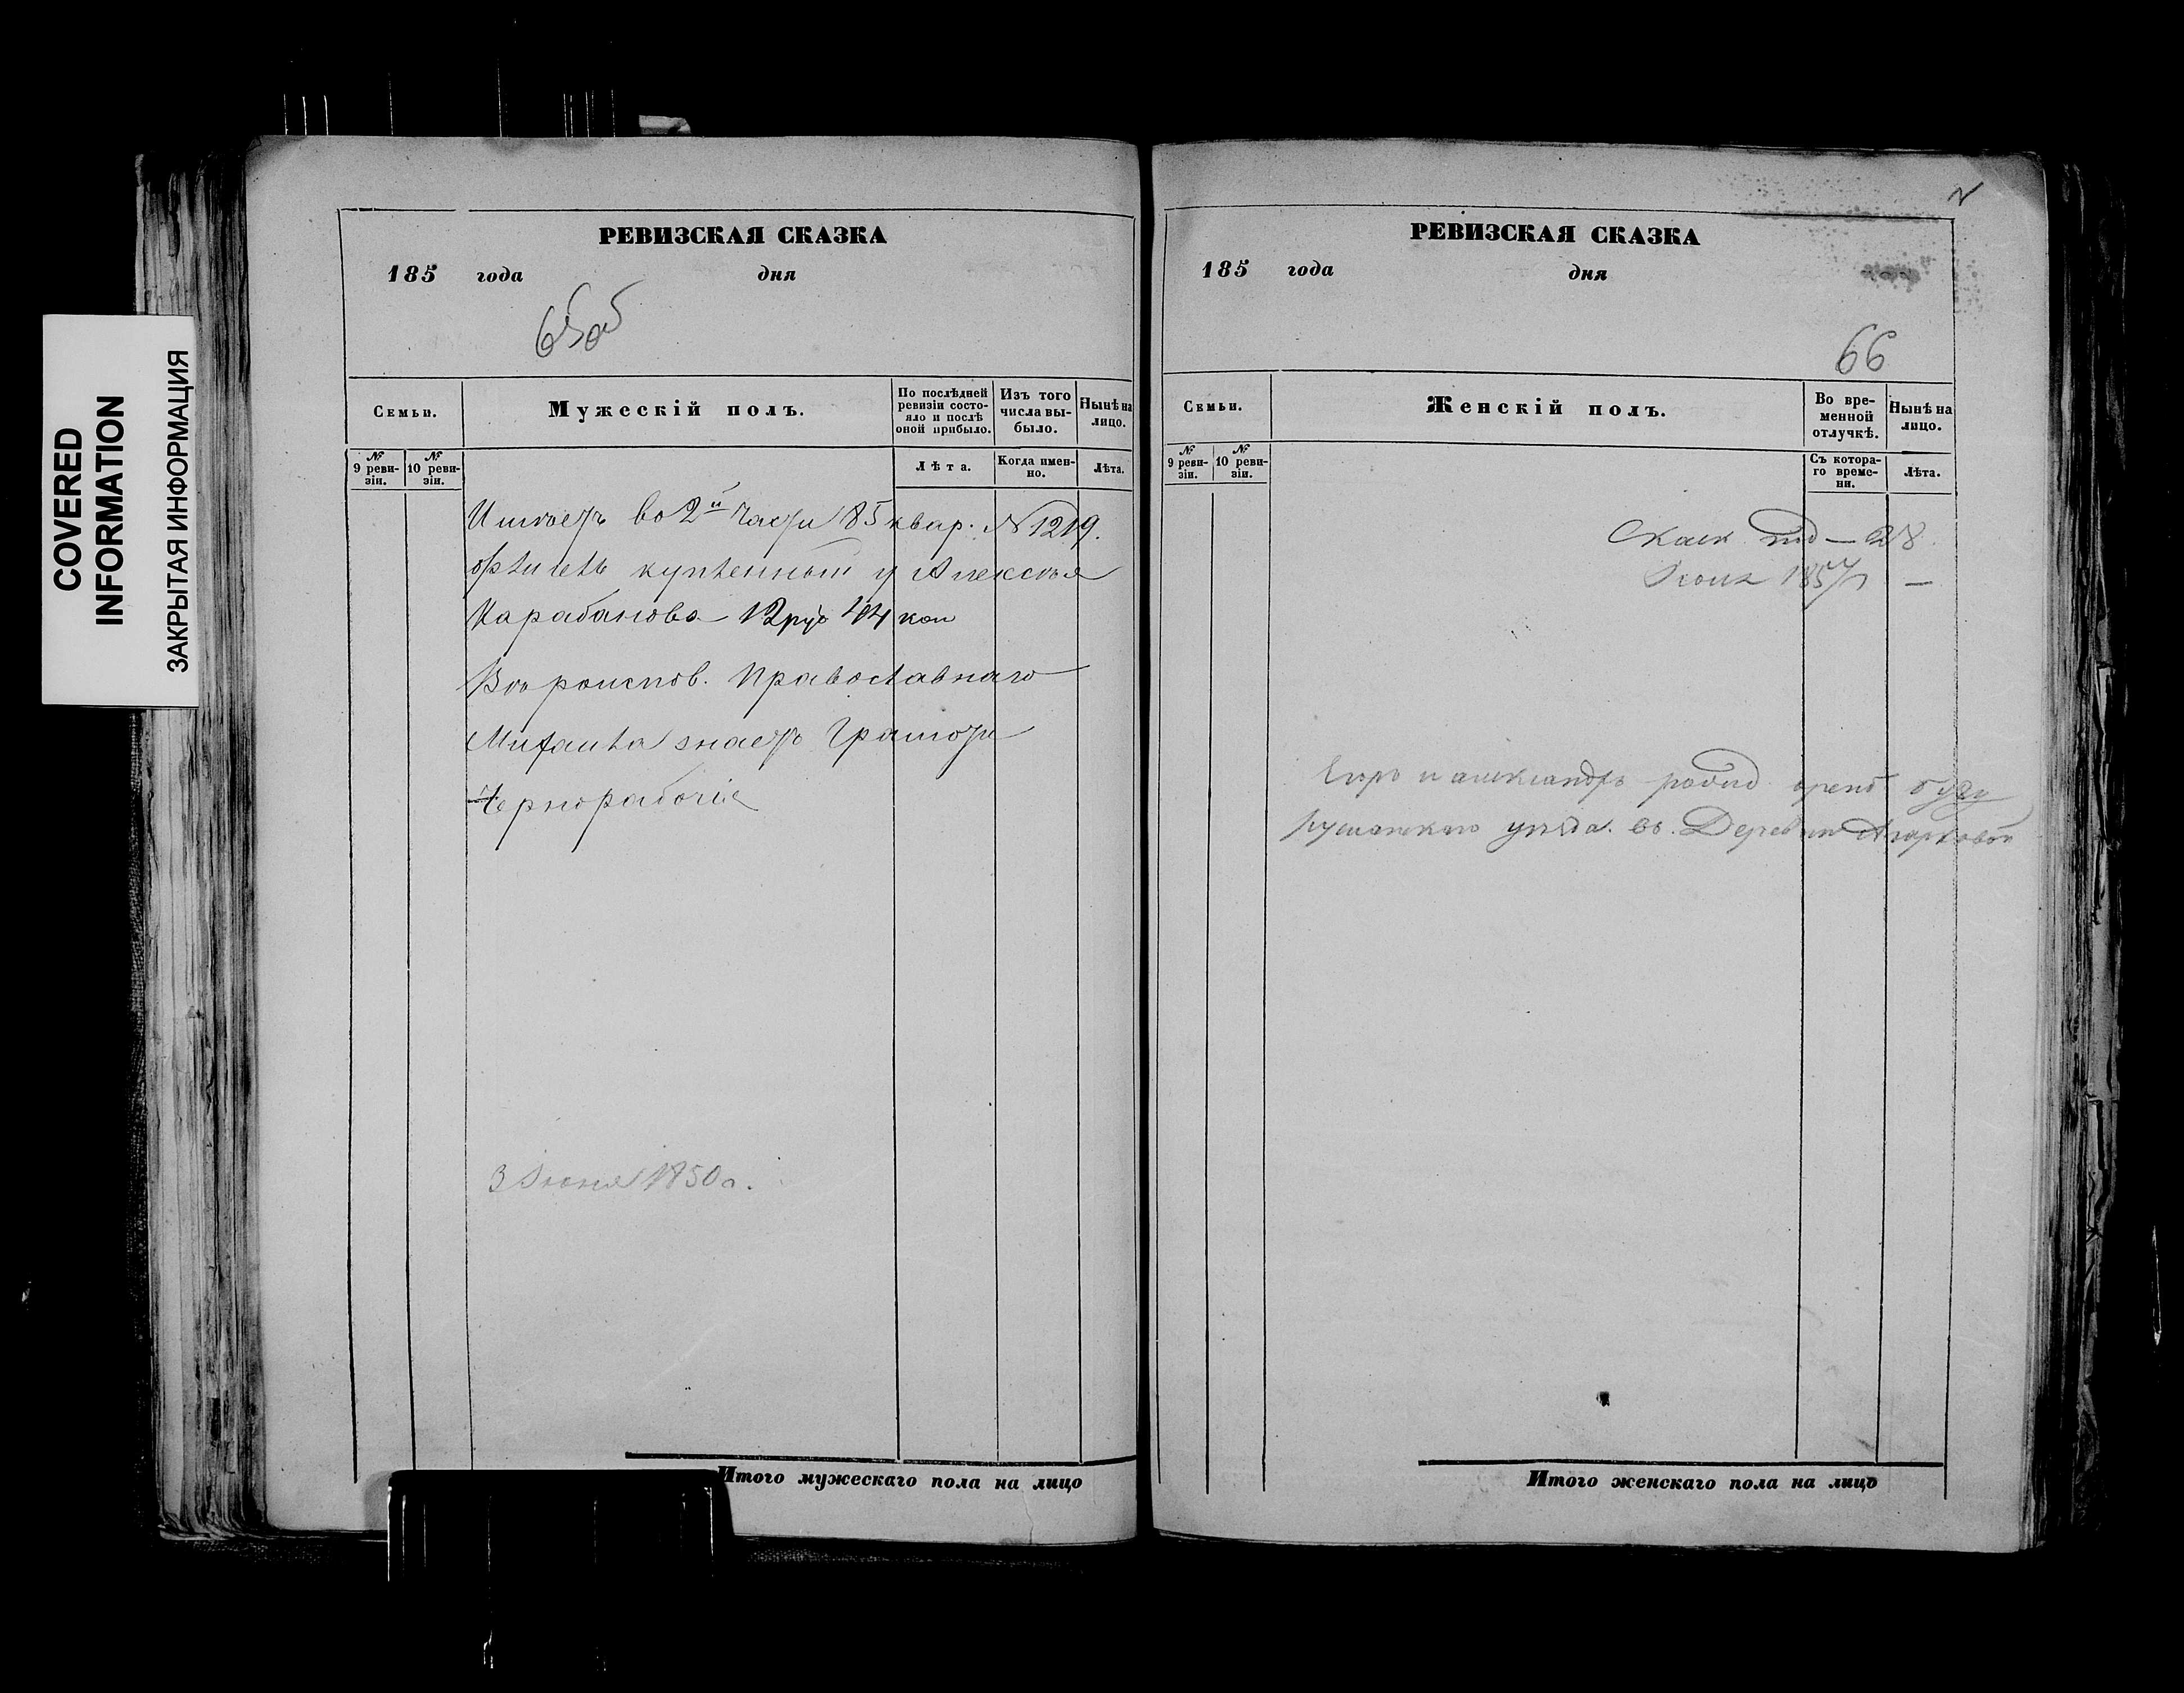 COVERED
INFORMATION
ЗАКРЫТАЯ ИНФОРМАЦИЯ
РЕВИЗСКАЯ СКАЗКА
185 года дня
65об
Семьи.
Мужескій полъ.
По послѣдней ревизіи состояло и послѣ оной прибыло.
Изъ того числа выбыло.
Нынѣ на лицо.
№ 9 ревизіи.
№ 10 ревизіи.
Лѣта.
Когда именно.
Лѣта.
Имѣетъ во 2й части 85 квар. N 1219.
купленный у Алексѣя
Карабанова 12 руб 44 коп
Вѣроиспов. Православнаго
Михаила знаетъ Грамоти
Чернорабочіе
3 Іюня 1850 г.
Итого мужескаго пола на лицо
РЕВИЗСКАЯ СКАЗКА
185 года дня
66
Семьи.
Женскій полъ.
Во временной отлучкѣ.
Нынѣ на лицо.
№ 9 ревизіи.
№ 10 ревизіи.
Съ котораго времени.
Лѣта.
Скаск под — 28
1857 —
Егоръ и александръ бугу
уѣзда. въ. Деревни
Итого женскаго пола на лицо